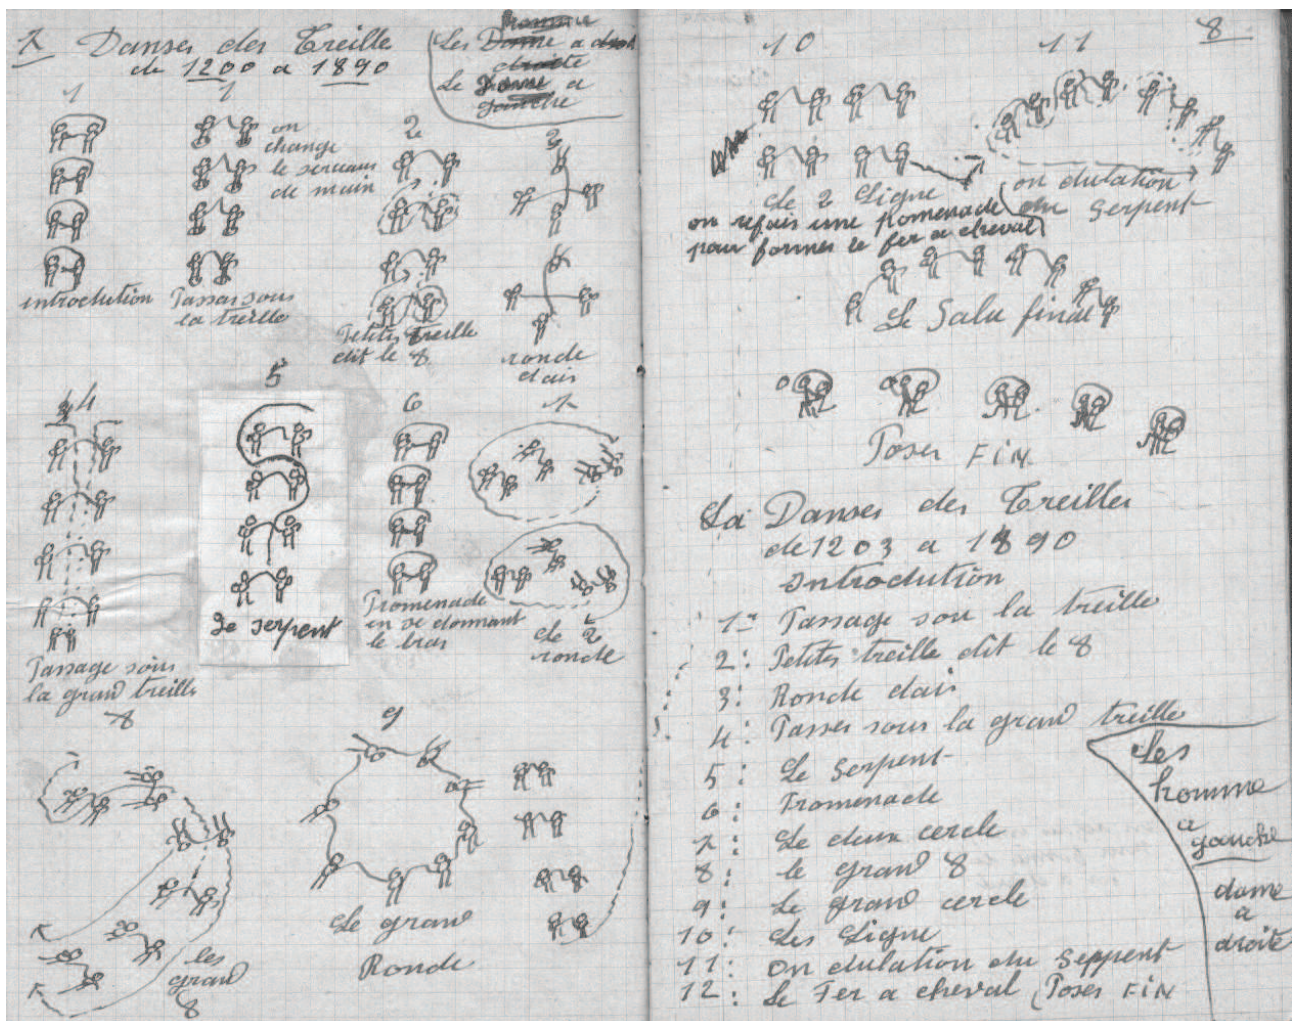 7 Danses des Treille
de 1200 a 1890
homme
Les Dame a droit
droite
Le Dame a
gauche
1
1
on
change
le serceaux
de main
2
3
introdution
Passai sous
la treille
Petites treille
dit le 8
ronde
dais
4
5
6
7
Passage sous
la grand treille
Le serpent
Promenade
en se donnant
le bras
de 2
ronde
8
9
les
grand
8
Le grand
Ronde
8
10
11
de 2 Ligne
on refais une pomenade
pour former le fer a cheval
on dulation
du Serpent
Le Salu final
Poser FIN
La Danses des Treilles
de 1203 a 1890
Introdution
1er Passage sou la treille
2: Petites treille dit le 8
3: Ronde dais
4: Passer sous la grand treille
5: Le Serpent
6: Promenade
7: Le deux cercle
8: le grand 8
9: Le grand cercle
10: Les Ligne
11: On dulation du Seppent
12: Le Fer a cheval (Poser FIN
Les
homme
a
gauche
dame
a
droite